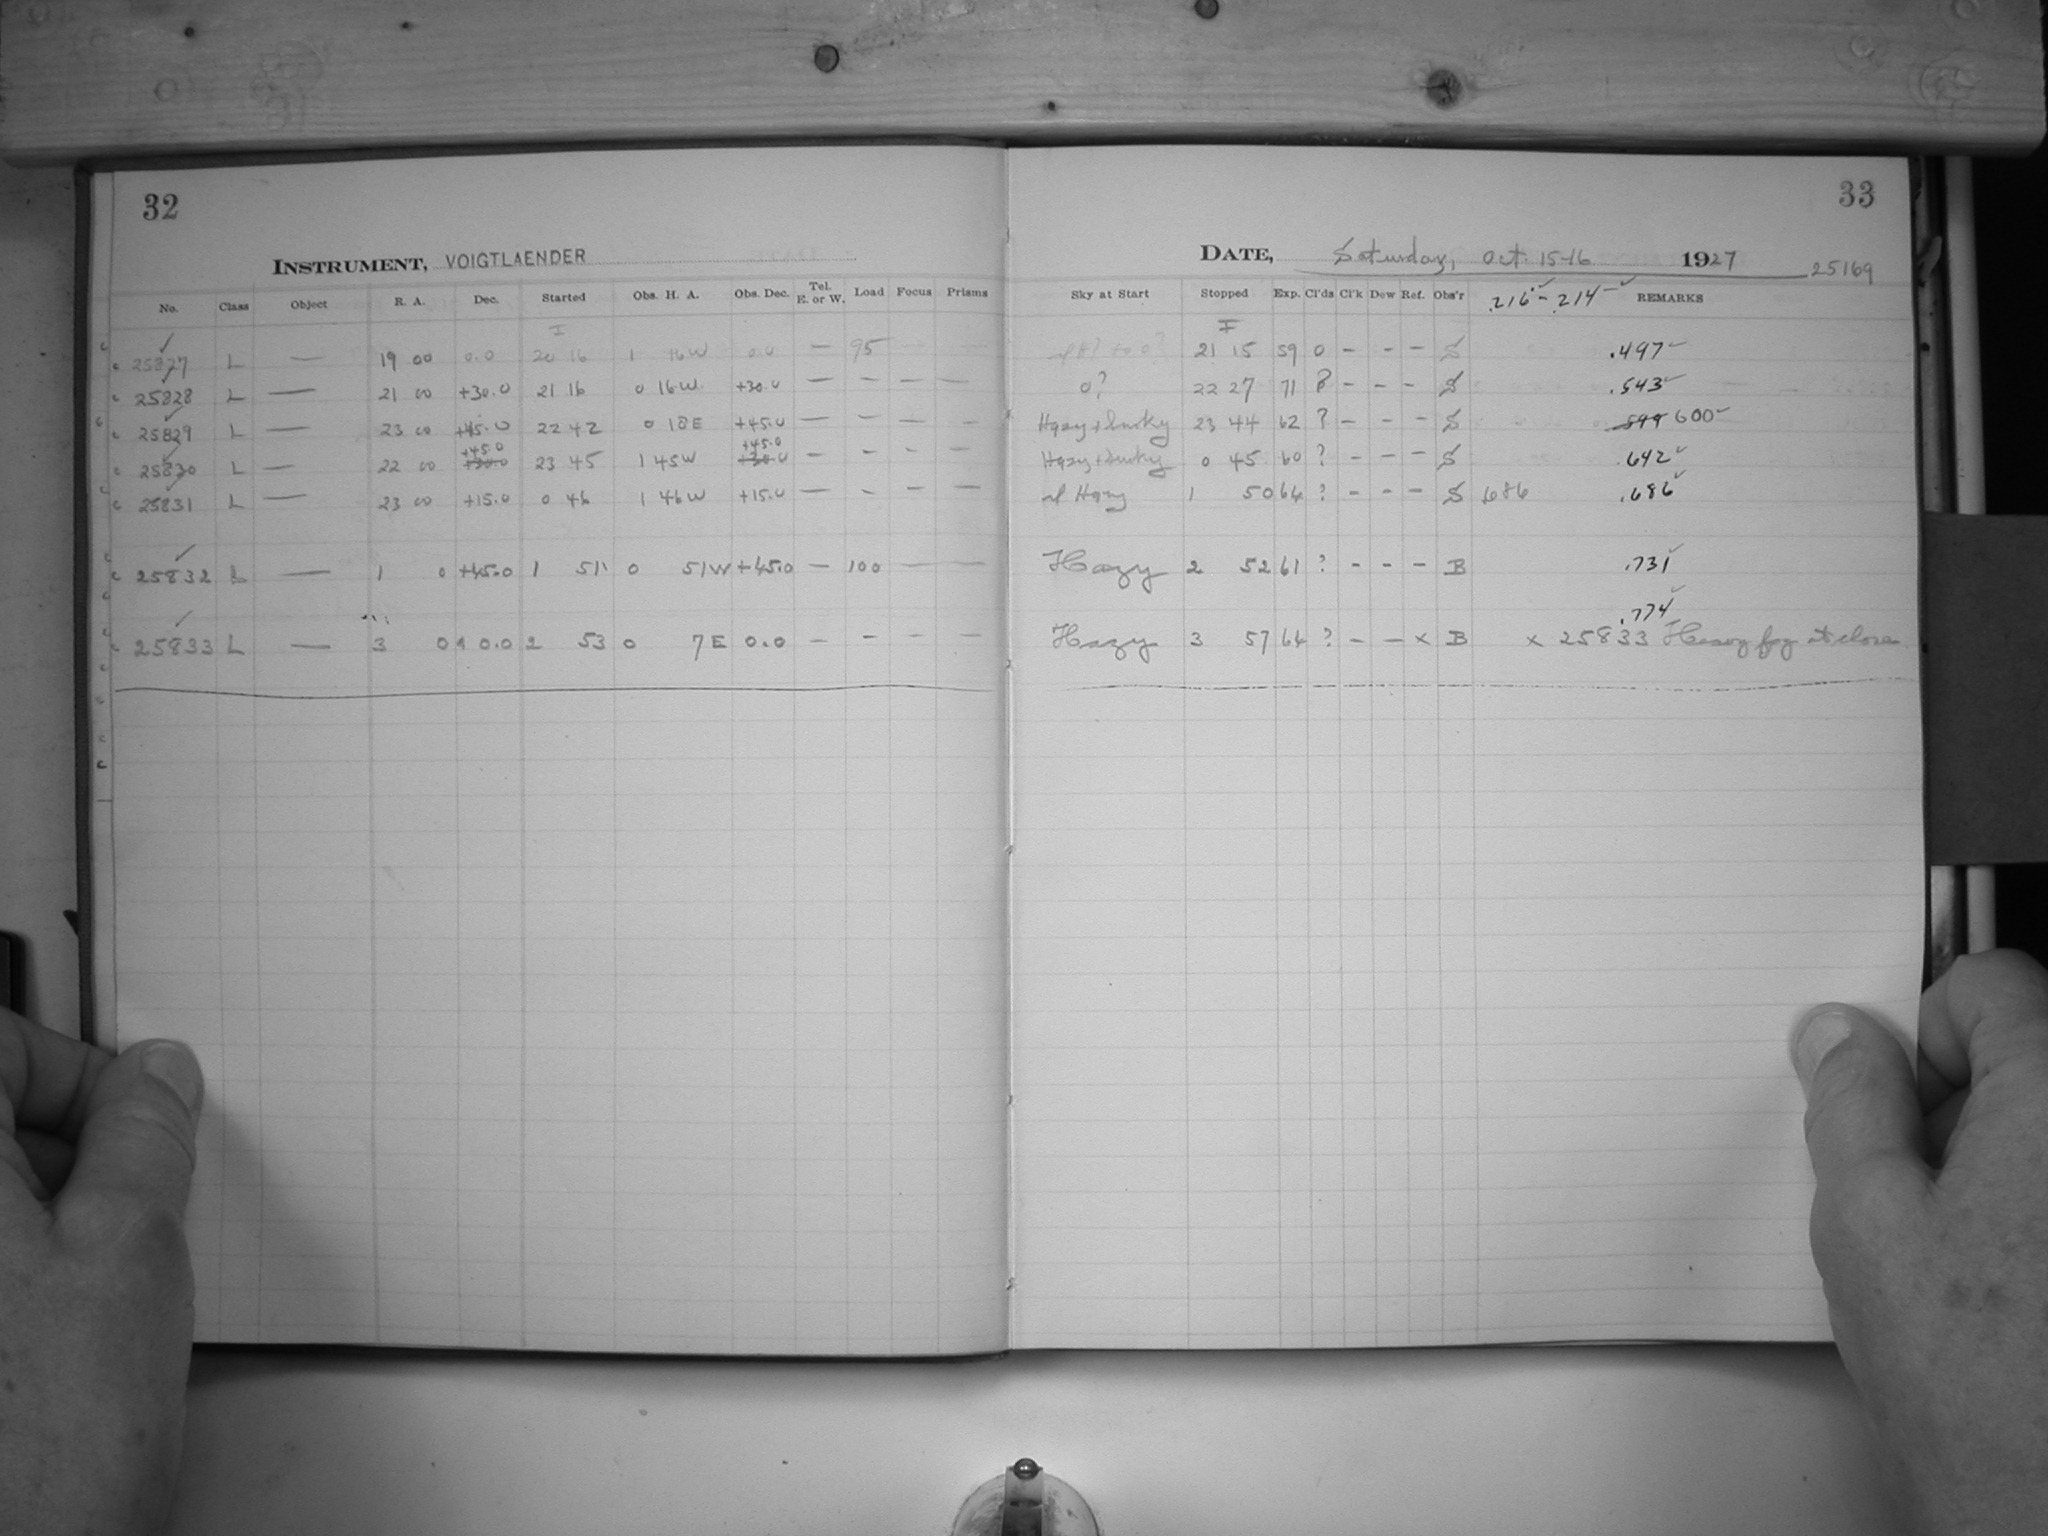 32
INSTRUMENT, VOIGTLAENDER
No. Class Object R. A. Dec. Started Obs. H. A. Obs. Dec. Tel. E. or W. Load Focus Prisms
25827 L — 19 00 0.0 20 16 1 16W 0.0 — 95
25828 L — 21 00 +30.0 21 16 0 16W +30.0 — — — —
25829 L — 23 00 +45.0 22 42 0 18E +45.0 — — — —
25830 L — 22 00 +45.0 +30.0 23 45 1 45W +45.0 +30.0 — – – –
25831 L — 23 00 +15.0 0 46 1 46W +15.0 — – – –
25832 L — 1 0 +45.0 1 51 0 51W +45.0 — 100 — —
25833 L — 3 0 0.0 2 53 0 7E 0.0 – – – –
33
DATE, Saturday, Oct. 15-16 1927 25169
Sky at Start Stopped Exp. Cl'ds Cl'k Dew Ref. Obs'r .216 - .214 REMARKS
21 15 59 0 – – – S .497
0? 22 27 71 ? – – – S .543
Hazy + smoky 23 44 62 ? – – – S .599 600
Hazy + smoky 0 45 60 ? – – – S .642
Hazy 1 50 64 ? – – – S .686 .686
Hazy 2 52 61 ? – – – B .731
.774
Hazy 3 57 64 ? – – x B x 25833 Heavy fog at close